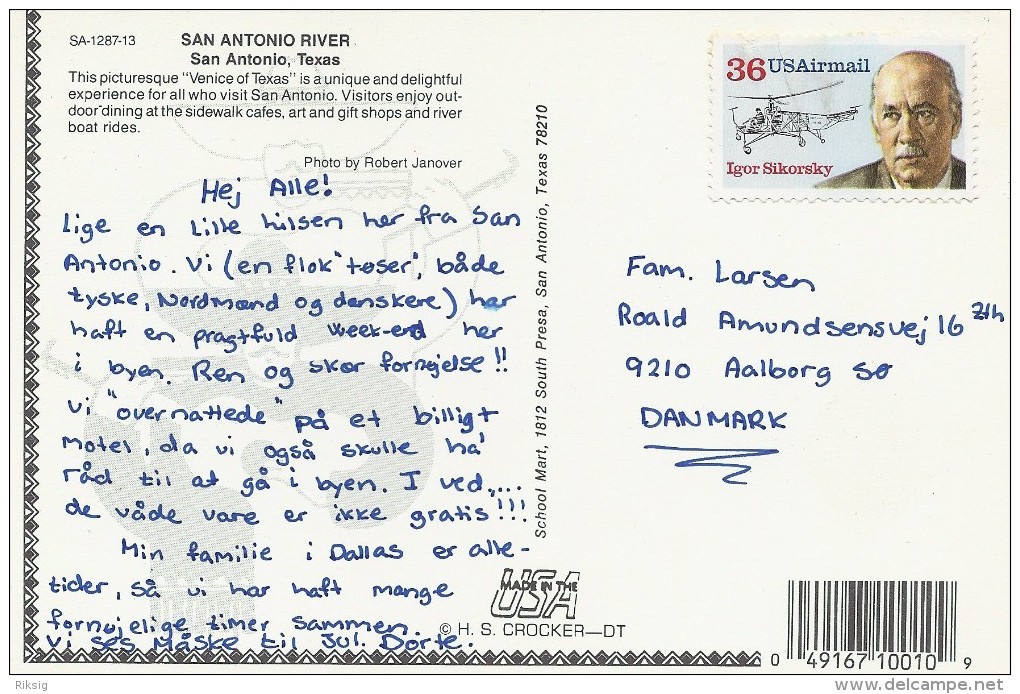 SA-1287-13
SAN ANTONIO RIVER
San Antonio, Texas
This picturesque "Venice of Texas" is a unique and delightful
experience for all who visit San Antonio. Visitors enjoy out-
door dining at the sidewalk cafes, art and gift shops and river
boat rides.
Photo by Robert Janover
Hej Alle!
Lige en Lille hilsen her fra San
Antonio. Vi (en flok "tøser", både
tyske, Nordmænd og danskere) har
haft en pragtfuld week-end her
i byen. Ren og skær fornøjelse!!
Vi "overnattede" på et billigt
Motel, da vi også skulle ha'
råd til at gå i byen. I ved,...
de våde vare er ikke gratis!!!
Min familie i Dallas er alle-
tider, så vi har haft mange
fornøjelige timer sammen.
Vi ses Måske til Jul. Dorte.
School Mart, 1812 South Presa, San Antonio, Texas 78210
36 USAirmail
Igor Sikorsky
Fam. Larsen
Roald Amundsensvej 16 2th
9210 Aalborg SØ
DANMARK
MADE IN THE
USA
© H. S. CROCKER—DT
0 49167 10010 9
Riksig
www.delcampe.net